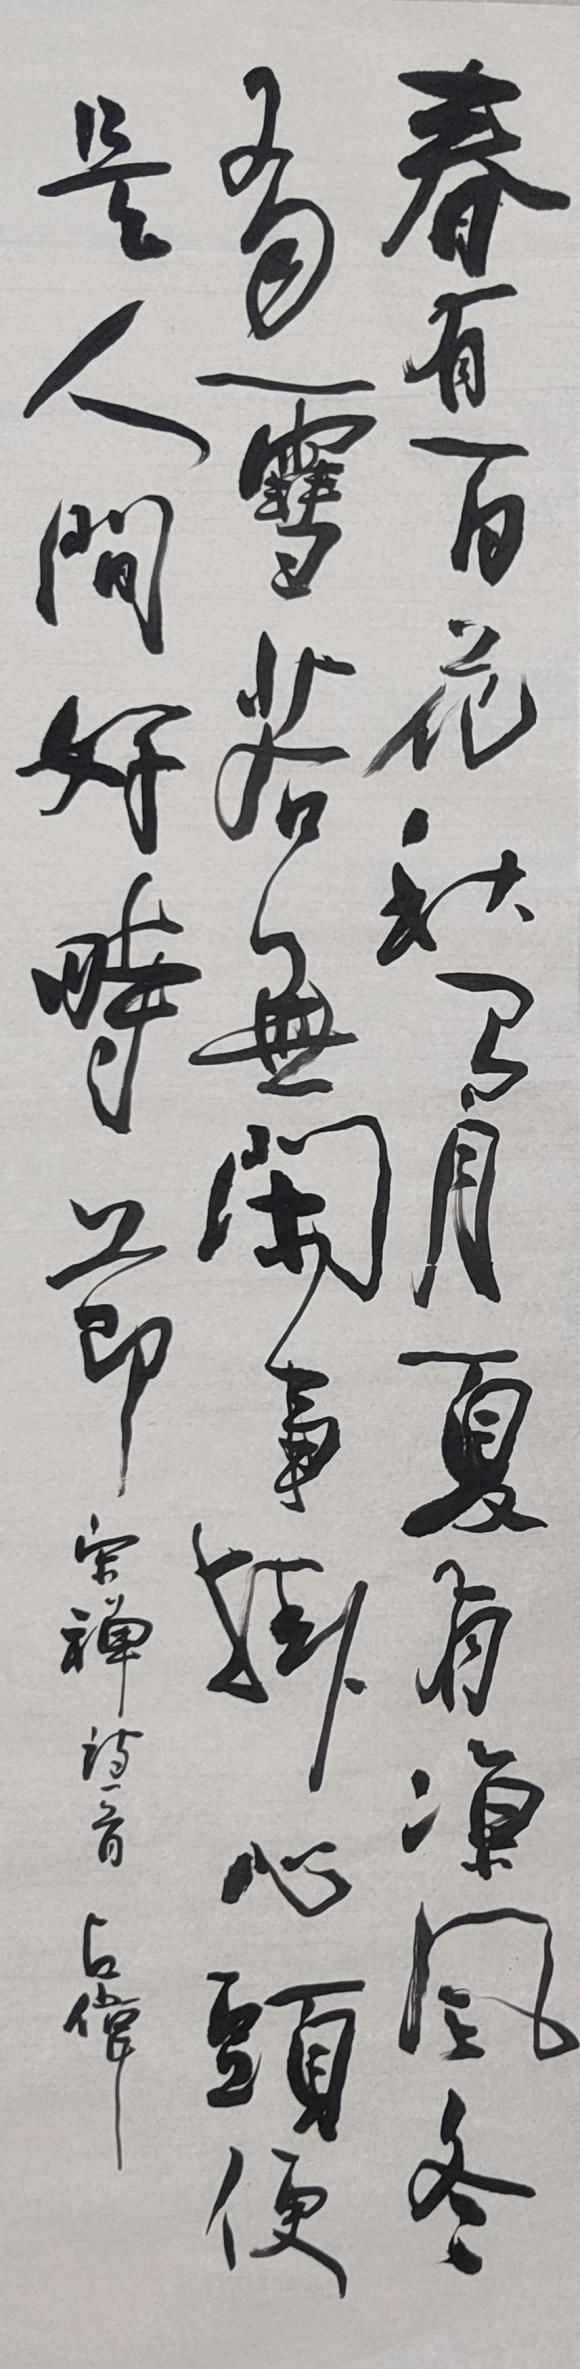 春有百花秋有月夏有凉風冬
有雪若無閑事掛心頭便
是人間好時節 宋禅詩一首 占偉